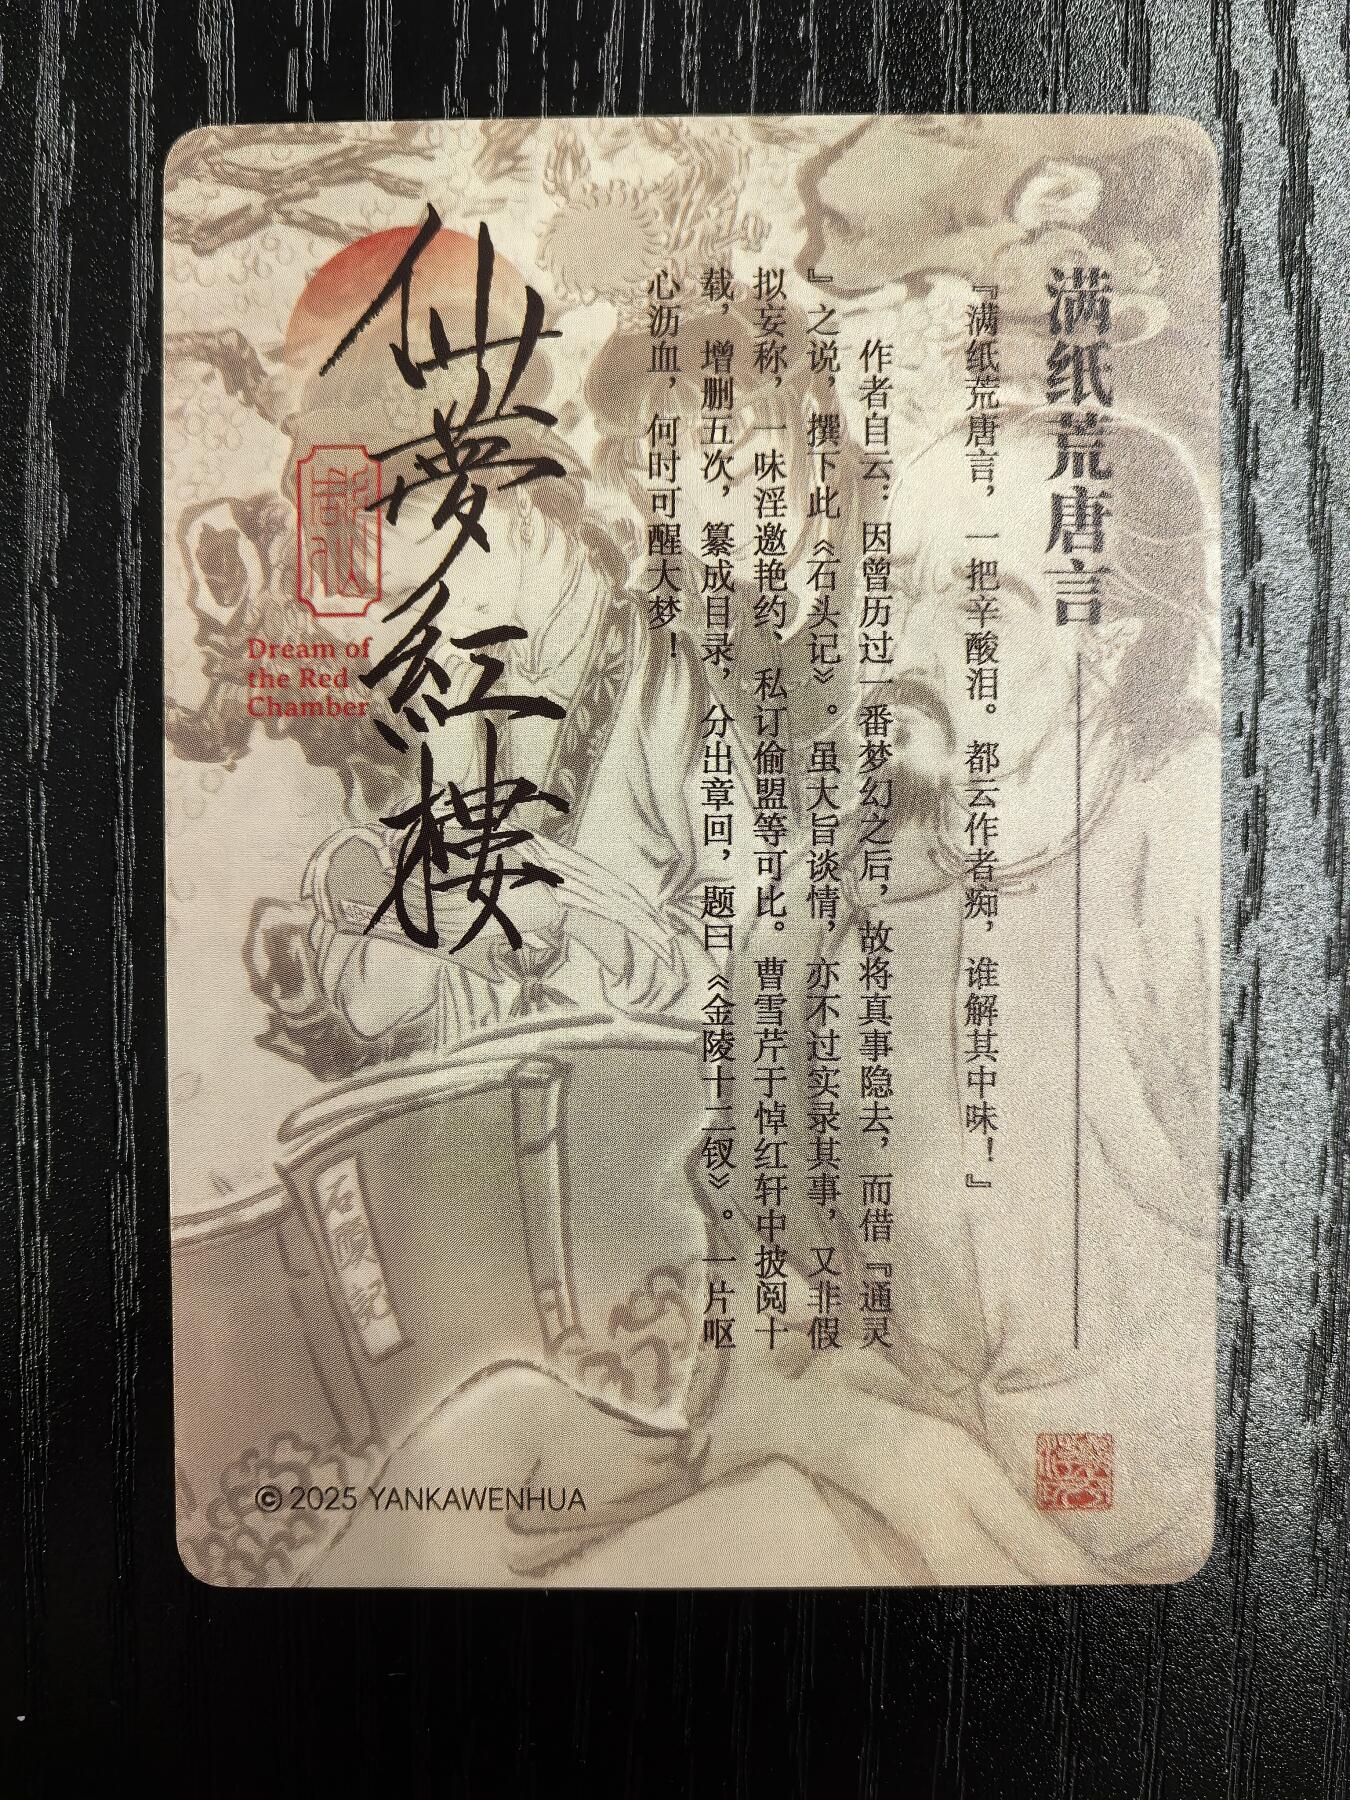 满纸荒唐言
『满纸荒唐言，一把辛酸泪。都云作者痴，谁解其中味！』
作者自云：因曾历过一番梦幻之后，故将真事隐去，而借『通灵
』之说，撰下此《石头记》。虽大旨谈情，亦不过实录其事，又非假
拟妄称，一味淫邀艳约、私订偷盟等可比。曹雪芹于悼红轩中披阅十
载，增删五次，纂成目录，分出章回，题曰《金陵十二钗》。一片呕
心沥血，何时可醒大梦！
仙夢紅樓
Dream of
the Red
Chamber
石頭記
© 2025 YANKAWENHUA